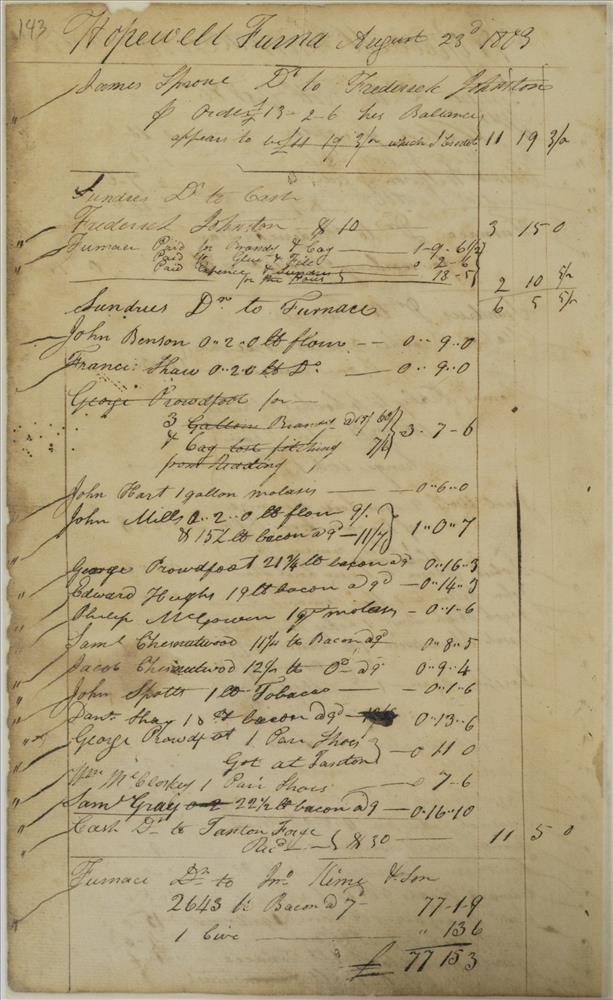 143
Hopewell Furna August 23d 1803
James Sproul Dr to Frederick Johnston
p Order £13-2-6 his Ballance
appears to be £11 19 3/2 which I Credit 11 19 3/2
Sundries Dr to Cash
Frederick Johnston $10 3 15 0
Furnace Paid for Brandy & Cag 1-9-6 1/2
Paid for Glue & File 0 2-6
Paid Expence & Sundries 18-5
for the House 2 10 5/2
6 5 5/2
Sundries Drs to Furnace
John Benson 0..2..0 lb flour -- 0..9..0
Francis Shaw 0..2..0 lb Do - 0..9..0
George Prowdfoot for
3 Gallons Brandy
& Cag lost fetching 7/6 3-7-6
from Reading
John Hart 1 gallon molases 0..6..0
John Mills 0..2..0 lb flour 9/.
& 15 1/2 lb bacon a 9d - 11/7 1..0..7
George Prowdfoot 21 3/4 lb bacon a 9d 0..16..3
Edward Hughs 19 lb bacon a 9d -0..14..3
Philip McGowen 1 qt molases - 0..1..6
Saml Chesnutwood 11 1/4 lb Bacon a 9d 0..8..5
Jacob Chesnutwod 12 1/2 lb Do a 9d 0..9..4
John Spotts 1 lb Tobaco - 0..1..6
Danl Shay 18 lb bacon a 9d - 0..13..6
George Prowdfot 1 Pair Shoes
Got at Taston - 0 11 0
Wm McCloskey 1 Pair Shoes 0 7-6
Saml Gray 22 1/2 lb bacon a 9 - 0..16..10
Cash Dr to Taston Forge
Recd $30 11 5 0
Furnace Dr to Jno Kime & Son
2643 lb Bacon a 7d 77-1-9
1 Cive " 13 6
£ 77 15 3